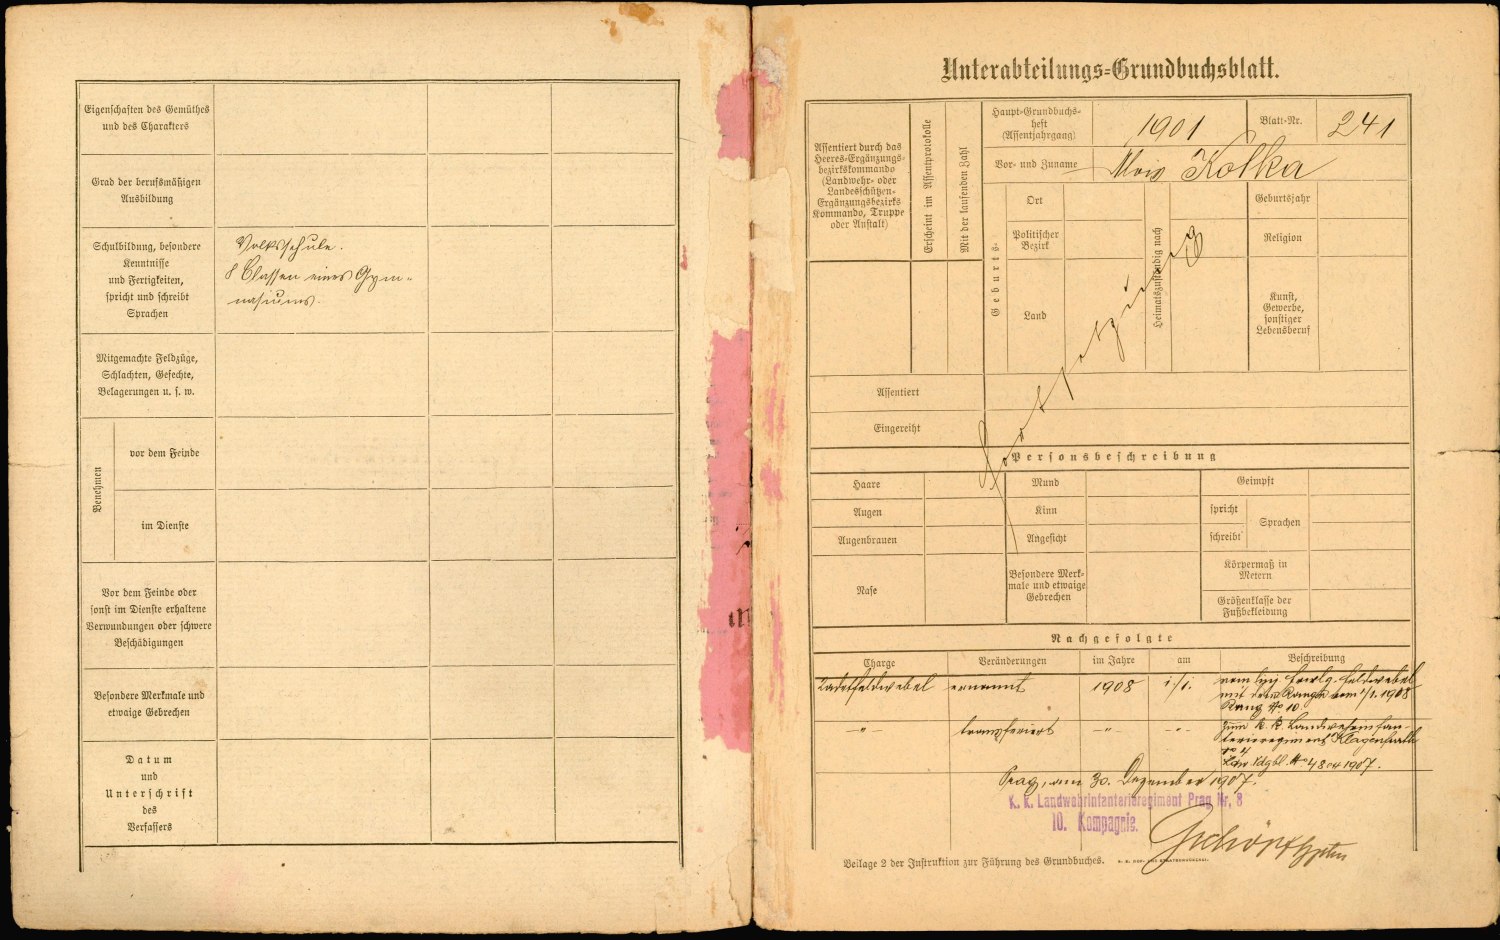 Eigenschaften des Gemüthes
und des Charakters
Grad der berufsmäßigen
Ausbildung
Schulbildung, besondere
Kenntnisse
und Fertigkeiten,
spricht und schreibt
Sprachen
Volksschule.
8 Classen eines Gym-
nasiums.
Mitgemachte Feldzüge,
Schlachten, Gefechte,
Belagerungen u. s. w.
Benehmen
vor dem Feinde
im Dienste
Vor dem Feinde oder
sonst im Dienste erhaltene
Verwundungen oder schwere
Beschädigungen
Besondere Merkmale und
etwaige Gebrechen
Datum
und
Unterschrift
des
Verfassers
Unterabteilungs-Grundbuchsblatt.
Assentiert durch das
Heeres-Ergänzungs-
bezirkskommando
(Landwehr- oder
Landesschützen-
Ergänzungsbezirks
Kommando, Truppe
oder Anstalt)
Erscheint im Assentprotokolle
Mit der laufenden Zahl
Haupt-Grundbuchs-
heft
(Assentjahrgang)
1901
Blatt-Nr.
241
Vor- und Zuname
Alois Kolka
Geburts-
Ort
Politischer
Bezirk
Land
Heimatszuständig nach
Geburtsjahr
Religion
Kunst,
Gewerbe,
sonstiger
Lebensberuf
Assentiert
Eingereiht
Personsbeschreibung
Haare
Mund
Geimpft
Augen
Kinn
spricht
Sprachen
Augenbrauen
Angesicht
schreibt
Nase
Besondere Merk-
male und etwaige
Gebrechen
Körpermaß in
Metern
Größenklasse der
Fußbekleidung
Nachgefolgte
Charge
Veränderungen
im Jahre
am
Beschreibung
Kadettfeldwebel ernannt 1908 1/1.
mit dem Range vom 1/1. 1908
Rang No. 10
-"- transferiert -"- -"-
zum k. k. Landwehrinfan-
terieregiment Klagenfurt
No 4
No 4804 1907.
Prag, am 30. Dezember 1907.
K. K. Landwehrinfanterieregiment Prag Nr. 8
10. Kompagnie.
Beilage 2 der Instruktion zur Führung des Grundbuches.
K. K. HOF- UND STAATSDRUCKEREI.